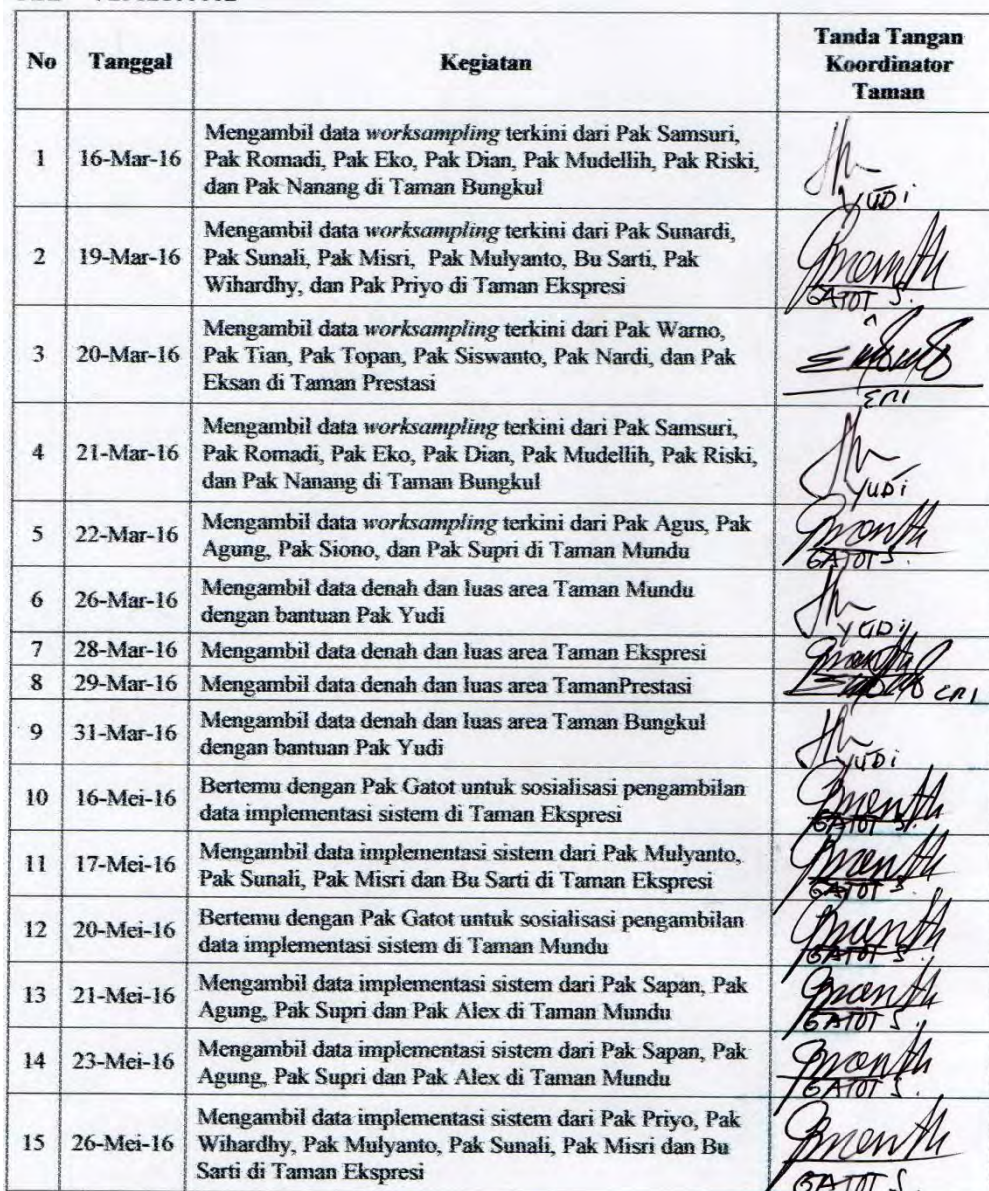 No
Tanggal
Kegiatan
Tanda Tangan
Koordinator
Taman
1
16-Mar-16
Mengambil data worksampling terkini dari Pak Samsuri,
Pak Romadi, Pak Eko, Pak Dian, Pak Mudellih, Pak Riski,
dan Pak Nanang di Taman Bungkul
YUDI
2
19-Mar-16
Mengambil data worksampling terkini dari Pak Sunardi,
Pak Sunali, Pak Misri, Pak Mulyanto, Bu Sarti, Pak
Wihardhy, dan Pak Priyo di Taman Ekspresi
GATOT S.
3
20-Mar-16
Mengambil data worksampling terkini dari Pak Warno,
Pak Tian, Pak Topan, Pak Siswanto, Pak Nardi, dan Pak
Eksan di Taman Prestasi
ERI
4
21-Mar-16
Mengambil data worksampling terkini dari Pak Samsuri,
Pak Romadi, Pak Eko, Pak Dian, Pak Mudellih, Pak Riski,
dan Pak Nanang di Taman Bungkul
YUDI
5
22-Mar-16
Mengambil data worksampling terkini dari Pak Agus, Pak
Agung, Pak Siono, dan Pak Supri di Taman Mundu
GATOT S.
6
26-Mar-16
Mengambil data denah dan luas area Taman Mundu
dengan bantuan Pak Yudi
YUDI
7
28-Mar-16
Mengambil data denah dan luas area Taman Ekspresi
8
29-Mar-16
Mengambil data denah dan luas area TamanPrestasi
ERI
9
31-Mar-16
Mengambil data denah dan luas area Taman Bungkul
dengan bantuan Pak Yudi
YUDI
10
16-Mei-16
Bertemu dengan Pak Gatot untuk sosialisasi pengambilan
data implementasi sistem di Taman Ekspresi
GATOT S.
11
17-Mei-16
Mengambil data implementasi sistem dari Pak Mulyanto,
Pak Sunali, Pak Misri dan Bu Sarti di Taman Ekspresi
GATOT S.
12
20-Mei-16
Bertemu dengan Pak Gatot untuk sosialisasi pengambilan
data implementasi sistem di Taman Mundu
GATOT S.
13
21-Mei-16
Mengambil data implementasi sistem dari Pak Sapan, Pak
Agung, Pak Supri dan Pak Alex di Taman Mundu
GATOT S.
14
23-Mei-16
Mengambil data implementasi sistem dari Pak Sapan, Pak
Agung, Pak Supri dan Pak Alex di Taman Mundu
GATOT S.
15
26-Mei-16
Mengambil data implementasi sistem dari Pak Priyo, Pak
Wihardhy, Pak Mulyanto, Pak Sunali, Pak Misri dan Bu
Sarti di Taman Ekspresi
GATOT S.